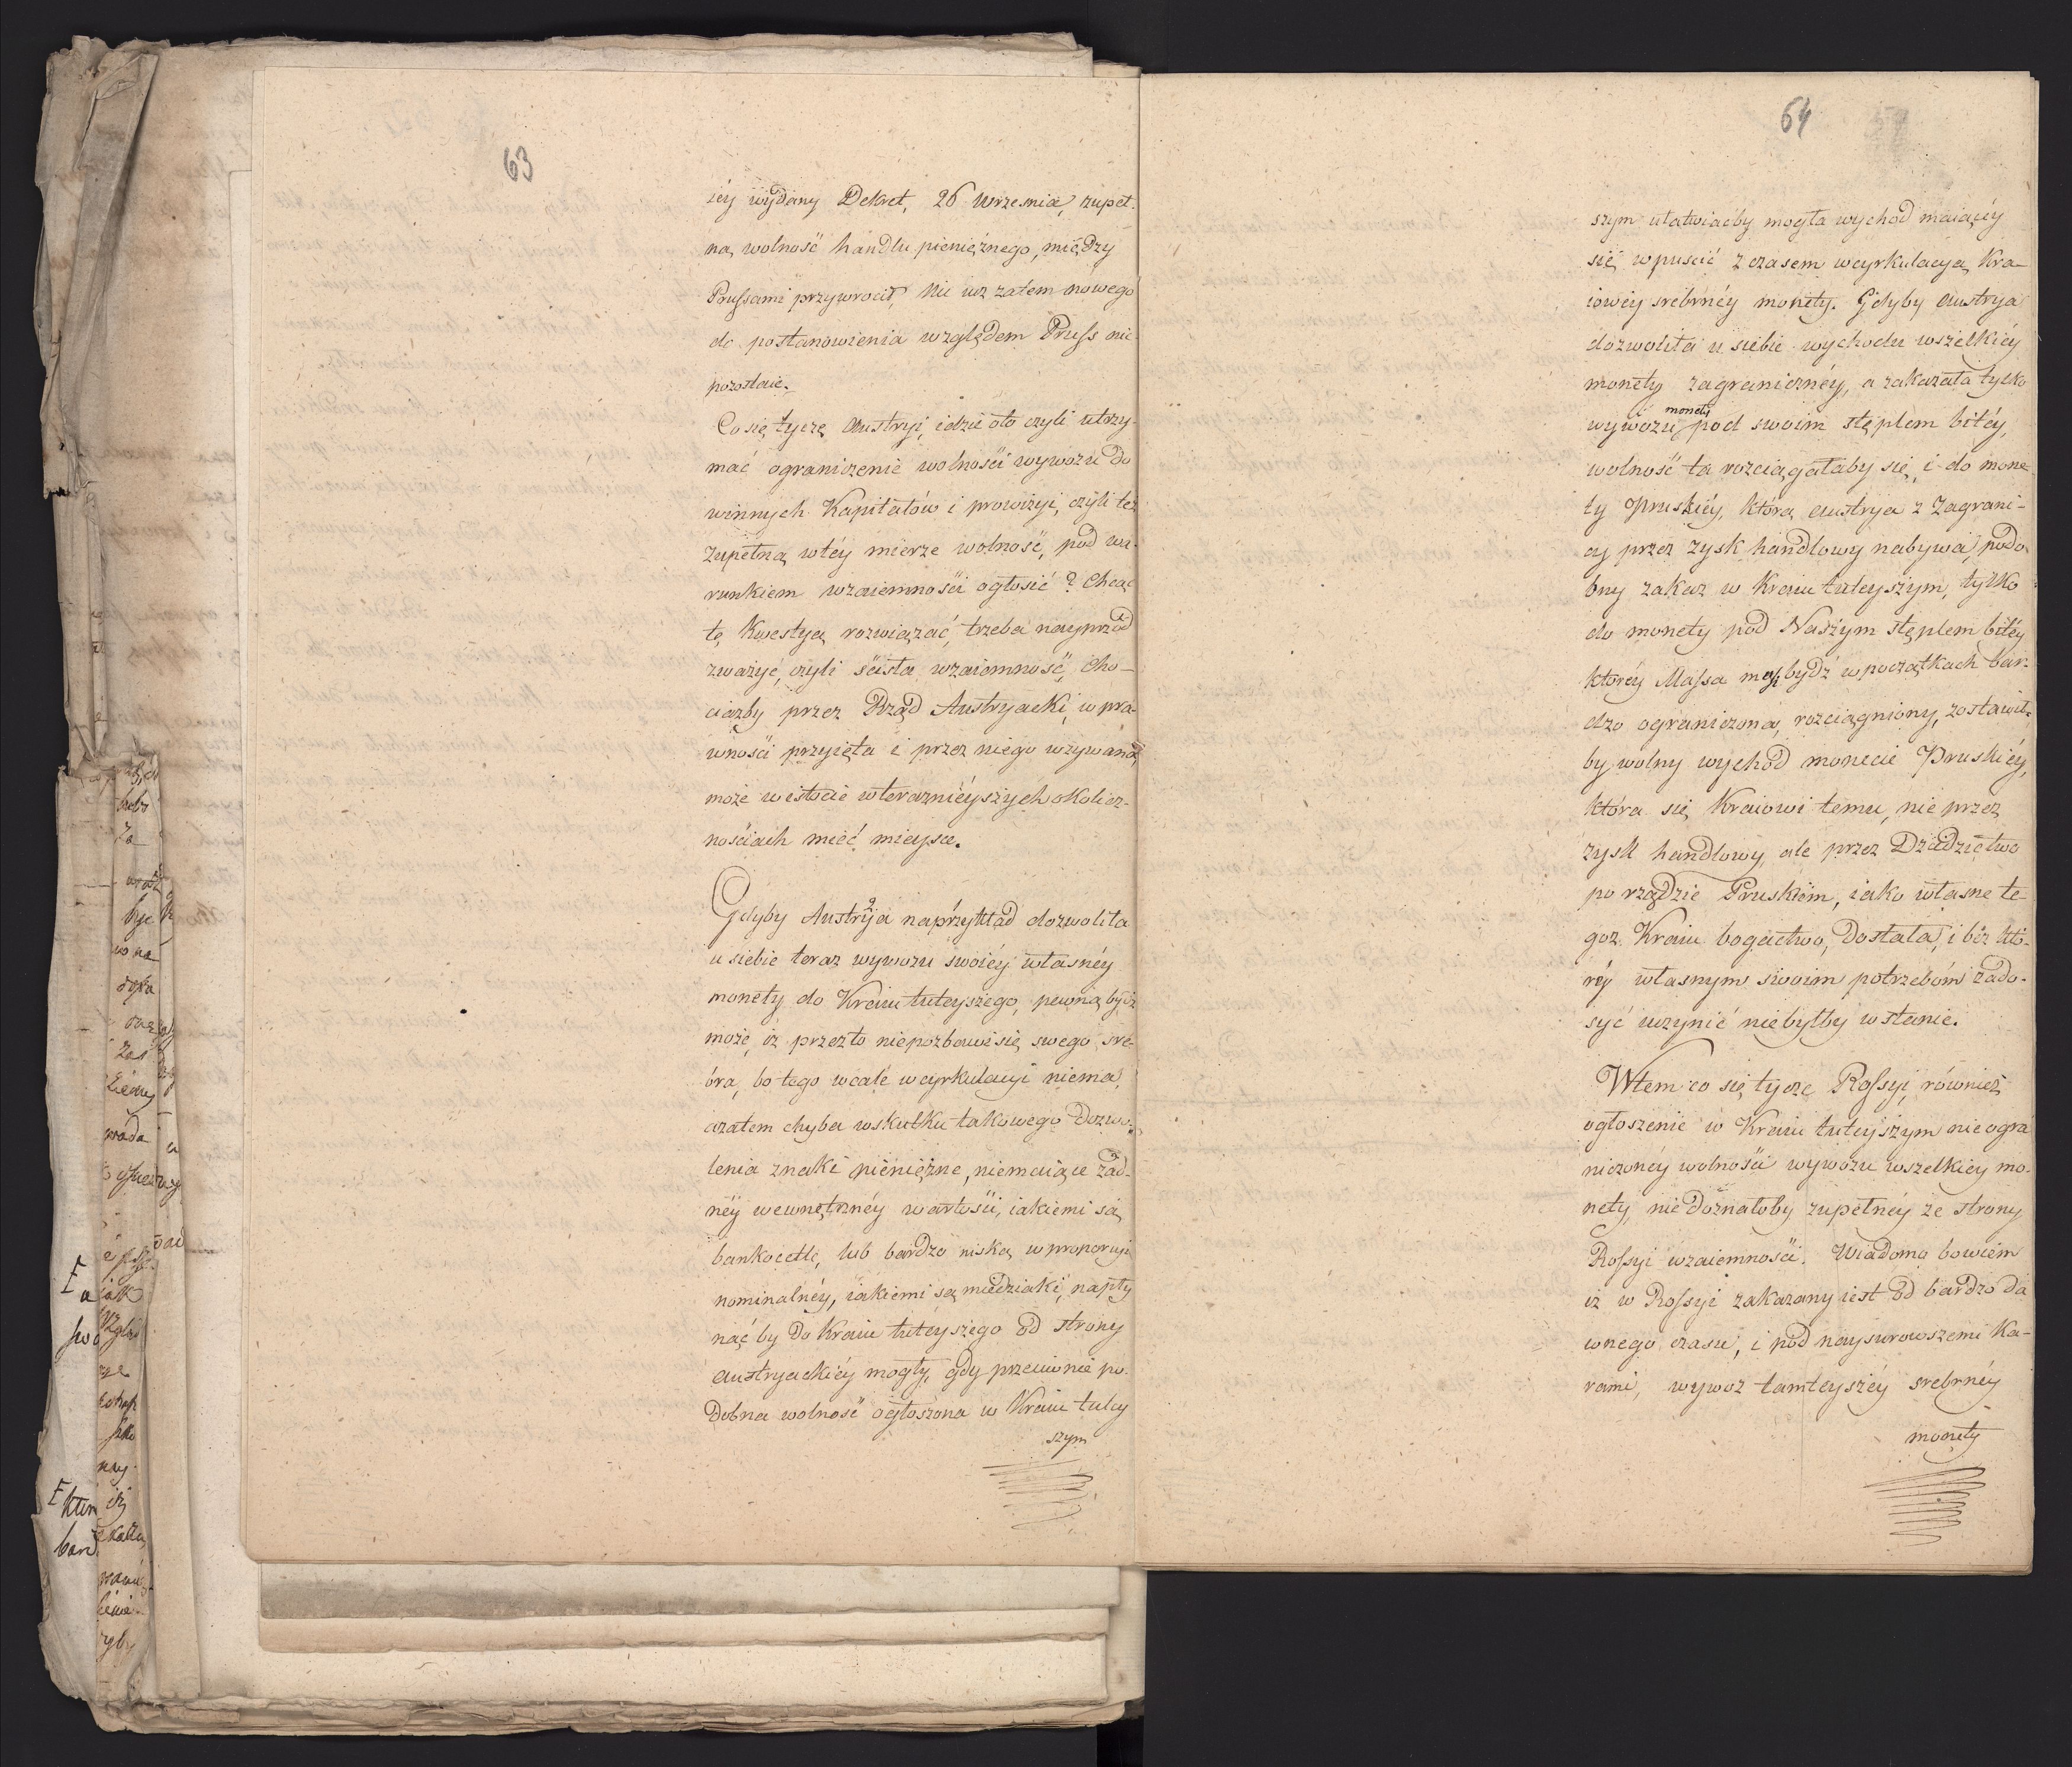 63
iéy wydany Dekret, 26 Wrzesnia, zupeł-
ną wolność handlu pieniężnego, między
Prussami przywrocił, nic więc zatem nowego
do postanowienia względem Pruss nie
pozostaie.
Co się tyczę Austryi, idzie oto czyli utrzy-
mać ograniczenie wolności wywozu do
winnych Kapitałów i prowizyi, czyli też
zupełną wtéy mierze wolność, pod wa-
runkiem wzaiemności ogłosić? Chcąc
tę Kwestyą rozwiązać, trzeba nayprzód
zważyć, czyli ścisła wzaiemność, cho-
ciażby przez Rząd Austryacki w pra-
wności przyięta i przez niego wzywana,
może w istocie w teraznieyszych okolicz-
nościach mieć mieysce.
Gdyby Austrija naprzykład dozwoliła
u siebie teraz wywozu swoiéy własnéy
monety do Kraiu tuteyszego, pewną być
może, iż przezto niepozbawi się swego sre-
bra, bo tego wcale w cyrkulacyi niema,
azatem chyba wskutku takowego dozwo-
lenia znaki pieniężne, niemaiące żad-
néy wewnętrznéy wartości, iakiemi są
bankocetle, lub bardzo niską w proporcyi
nominalnéy, iakiemi są miedziaki, napły
nąć by do Kraiu tuteyszego od strony
austryackiéy mogły, gdy przeciwnie po-
dobna wolność ogłoszona w Kraiu tutey
szym
64
szym ułatwiaćby mogła wychod maiącéy
się wpuścić z czasem w cyrkulacyą Kra-
iowéy srebrnéy monety. Gdyby Austrya
dozwoliła u siebie wychodu wszelkiéy
monety zagranicznéy, a zakazała tylko
monety
wywozu pod swoim stęplem bitéy,
wolność ta rozciągałaby się, i do mone-
ty Pruskiéy, którą Austrya z Zagrani-
cy przez zysk handlowy nabywa, podo
bny zakaz w Kraiu tuteyszym, tylko
do monety pod Naszym stęplem bitéy
któréy Massa musi bydź w początkach bar-
dzo ograniczona, rozciągniony, zostawił-
by wolny wychod monecie Pruskiéy,
która się Kraiowi temu, nie przez
zysk handlowy, ale przez Dziedzictwo
po rządzie Pruskiem, iako własne te-
goż Kraiu bogactwo, dostała, i bez któ-
réy własnym swoim potrzebom zado-
syć uczynić niebyłby wstanie.
Wtem co się tycze Rossyi, również
ogłoszenie w Kraiu tuteyszym nieogra
niczonéy wolności wywozu wszelkiey mo-
nety, nie doznałoby zupełnéy ze strony
Rossyi wzaiemności. Wiadomo bowiem
iż w Rossyi zakazany iest od bardzo da
wnego czasu, i pod naysurowszemi Ka-
rami, wywoz tamteyszéy srebrnéy
monety